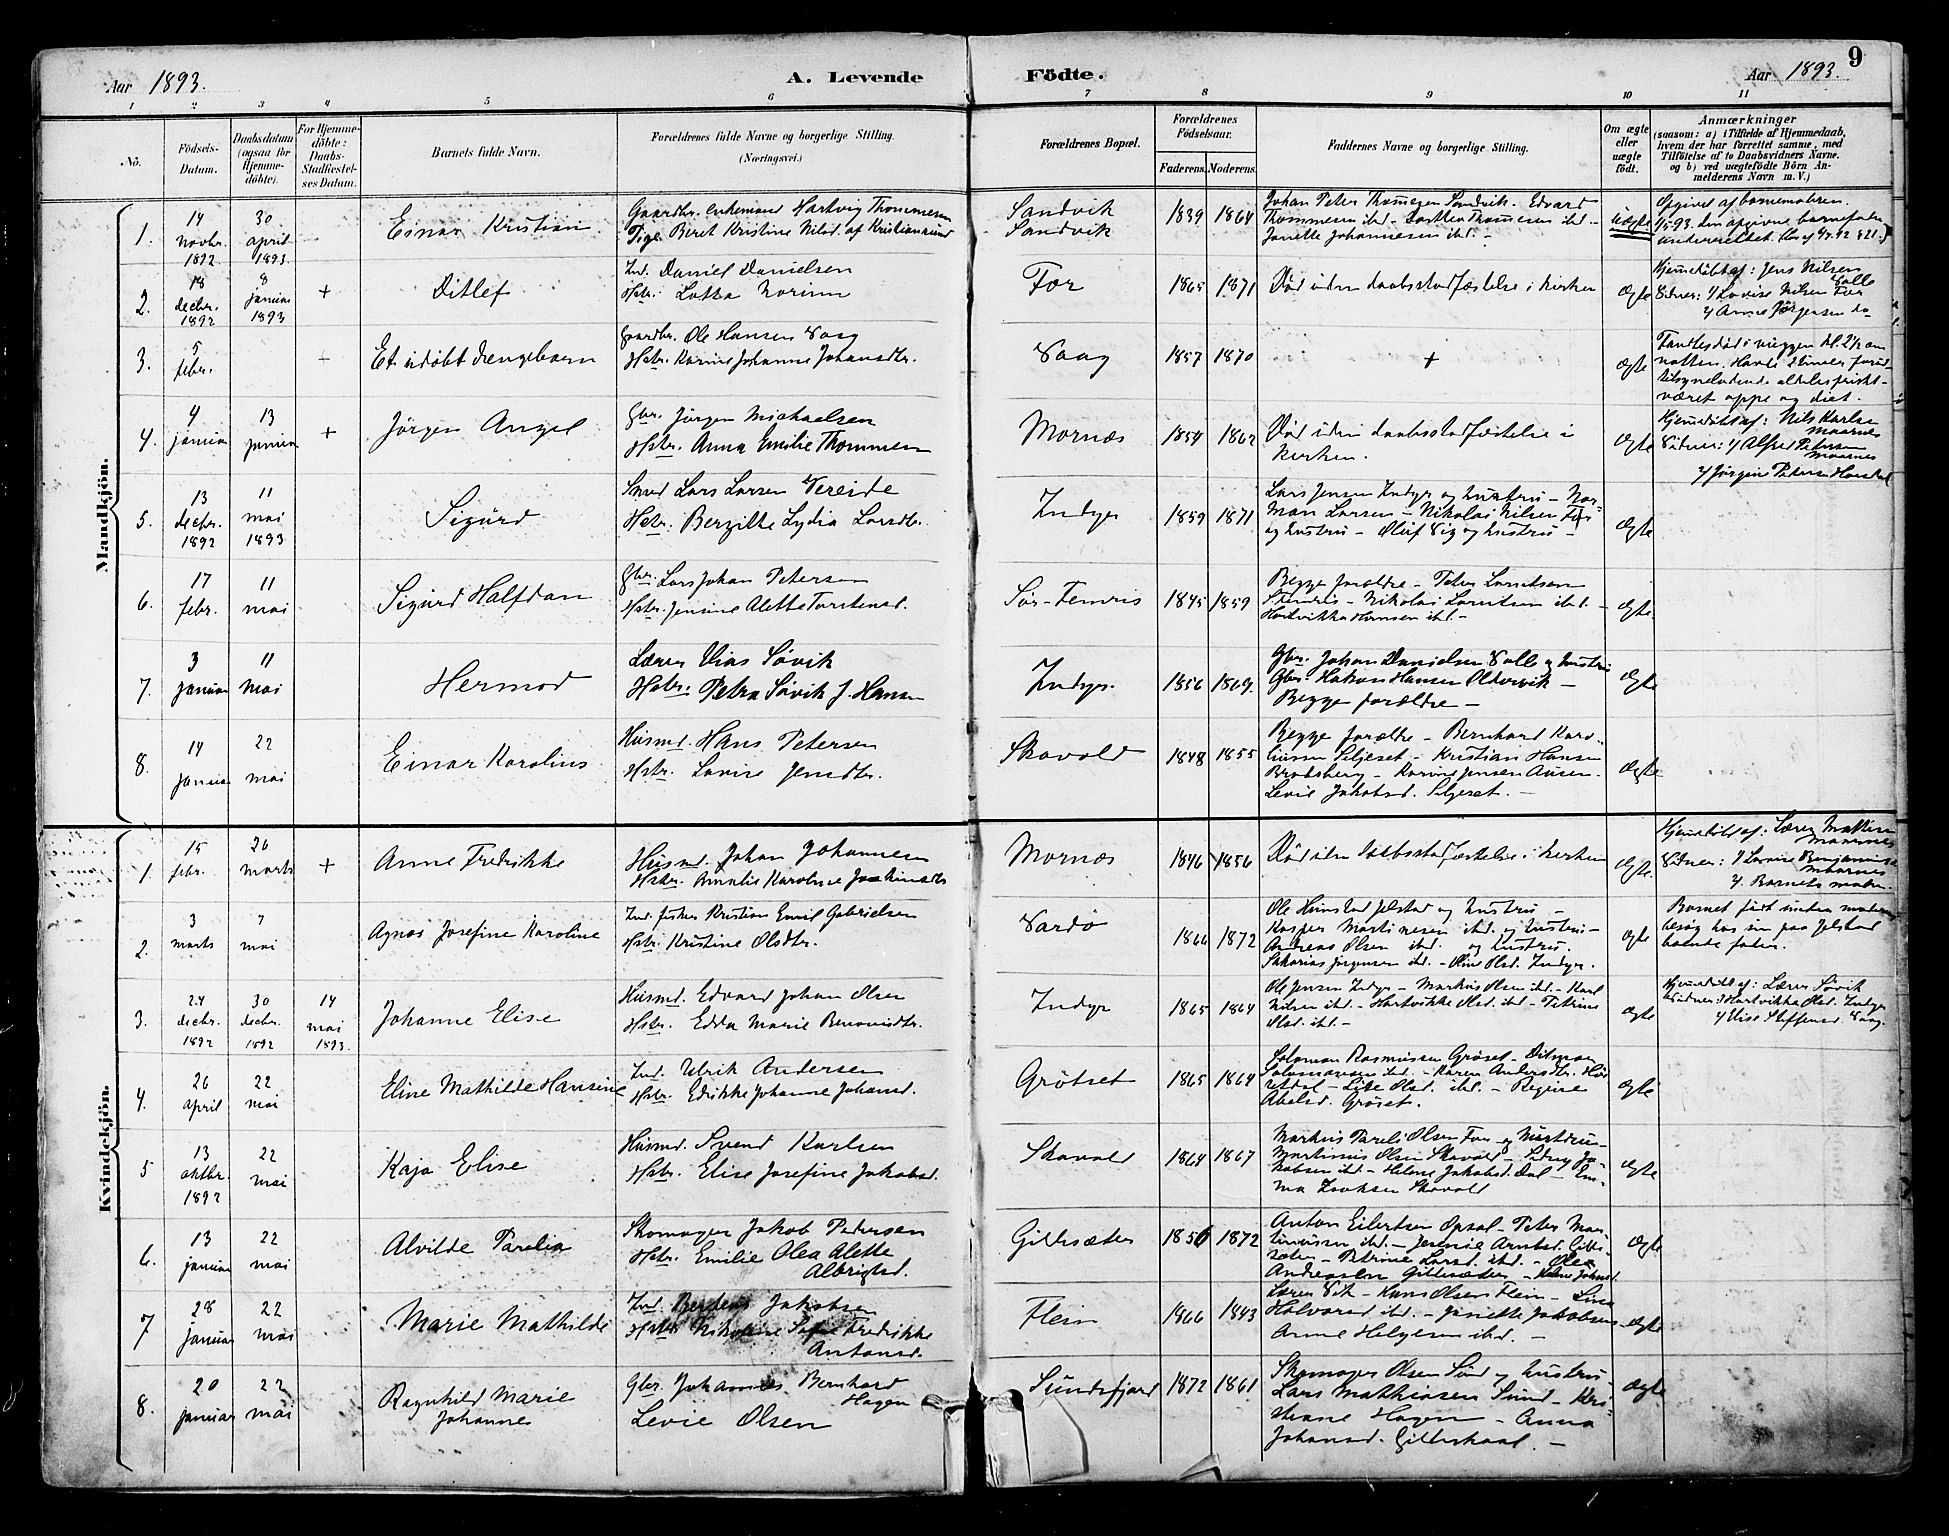 9
Aar 1893.
A. Levende Födte.
Aar 1893.
1 2 3 4 5 6 7 8 9 10 11
No.
Födsels-Datum.
Daabsdatum (ogsaa for Hjemme-döbte).
For Hjemme-döbte: Daabs-Stadfæstel-ses Datum.
Barnets fulde Navn.
Forældrenes fulde Navne og borgerlige Stilling. (Næringsvei.)
Forældrenes Bopæl.
Forældrenes Födselsaar.
Faderens. Moderens.
Faddernes Navne og borgerlige Stilling.
Om ægte eller uægte födt.
Anmærkninger (saasom: a) i Tilfælde af Hjemmedaab, hvem der har forrettet samme, med Tilföielse af to Daabsvidners Navne, og b) ved uægtefödte Börn An-melderens Navn m. V.)
Mandkjön.
1. 14 novbr. 1892 30 april 1893 Einar Kristian
Gaardbr. enkemand Hartvig Thommesen
Pige Beret Kristine Nilsd. af Kristiansund
Sandvik
Sandvik
1839 1864
Johan Peter Thommesen Sandvik. Edvard
Thommesen ibd. Thommesen ibd.
Janette Johannesen ibd. –
uægte
Opgivet af barnemoderen.
2. 18 decbr. 1892 8 januar 1893 + Ditlef
Ind. Daniel Danielsen
Hstr. Lotta Norinn
For 1865 1871
Död uden daabsstadfæstelse i kirken
ægte
Hjemmedöbt af: Jens Nilsen Valle
Vidner: 1/ Lovise Nilsen For
2/ Anne Jörgensen do
3. 5 febr. + Et udöbt drengebarn
Gaardbr. Ole Hansen Vaag
Hstr. Karine Johanne Johansdtr.
Vaag 1857 1870 + ægte
Fandtes död i vuggen kl. 2½ om
natten.
været oppe og diet.
4. 4 januar 13 januar + Jörgen Angel
Gbr. Jörgen Michaelsen
Hstr. Anna Emilie Thommesen
Mornæs 1854 1862
Död uden daabsstadfæstelse i
kirken.
ægte
Hjemmedöbt af: Nils Karlsen Maarnes
Vidner: 1/ Alfred Petersen Maarnes
2/ Jörgine Petersen
5. 13 decbr. 1892 11 mai 1893 Sigurd
Lars Larsen Vereide
Hstr. Bergitte Lydia Larsdtr.
Indyr 1859 1871
Lars Jensen Indyr og hustru – Nor-
man Larsen – Nikolai Nilsen For
og hustru – Oluf Vig og hustru –
ægte
6. 17 febr. 11 mai Sigurd Halfdan
Gbr. Lars Johan Petersen
Hstr. Jensine Alette Torstensd.
Sör-Femris 1845 1859
Begge forældre – Peter Larntsen
S. Femris – Nikolai Larntsen ibd. –
Hartvikka Hansen ibd. –
ægte
7. 3 januar 11 mai Hermod
Lærer Elias Sövik
Hstr. Petra Sövik f. Hansen
Indyr. 1856 1869.
Gbr. Johan Danielsen Valle og hustru
Gbr. Hakon Hansen Oldervik –
Begge forældre –
ægte
8. 14 januar 22 mai Einar Karolius
Husmd. Hans Petersen
Hstr. Lovise Jensdtr.
Skavold 1848 1855
Begge forældre – Bernhard Karo-
liussen Seljeset – Kristian Hansen
Bratsberg – Karine Jensen Ausen.
Levie Jakobsd. Seljeset. –
ægte
Kvindekjön.
1. 15 febr. 26 marts + Anne Fredrikke
Husmd. Johan Johannesen
Hstr. Amalie Karoline Joakimsdtr
Mornæs 1846 1856
Död uden daabsstadfæstelse i kirken
ægte
Hjemmedöbt af: Lærer Mattisen Maarnes
Vidner: 1/ Lovise Benjaminsd. Maarnes
2/ Barnets moder.
2. 3 marts 7 mai Agnes Josefine Karoline
Ind. fisker Kristian Emil Gabrielsen
Hstr. Kristine Olsdtr.
Vardö 1866 1872
Ole Hunstad Jelstad og hustru –
Kasper Martinesen ibd. og hustru –
Andreas Olsen ibd. og hustru.
Sakarias Jörgensen ibd. – Oline Olsd. Indyr.
ægte
Barnet födt under moderens
besög hos sin paa Jelstad
boende fader.
3. 24 decbr. 1892 30 decbr. 1892 14 mai 1893. Johanne Elise
Husmd. Edvard Johan Olsen
Hstr. Edda Marie Benonisdtr.
Indyr 1865 1864
Ole Jensen Indyr – Markus Olsen ibd. – Karl
Nilsen ibd. – Hartvikke Olsd. ibd. – Petrine
Olsd. ibd. –
ægte
Hjemmedöbt af: Lærer Sövik
Vidner: 1/ Hartvikka Olsd. Indyr
2/ Elise Steffensd. Vaag.
4. 26 april 22 mai Eline Mathilde Hansine
Ind. Ulrik Andersen
Hstr. Edrikke Johanne Johansd.
Grötset 1865 1864
Salomon Rasmussen Gröset – Ditman
Salomonsen ibd. – Karen Andersdtr.
– Lise Olsd. ibd. – Regine
Abelsd. Gröset.
ægte
5 13 oktbr. 1892 22 mai Kaja Elise
Husmd. Svend Karlsen
Hstr. Elise Josefine Jakobsd.
Skavold 1864 1867
Markus Pareli Olsen For og hustru –
Martinus Olsen Skavold – Ja-
kobsen ibd. – Helene Jakobsd. Dal – Em-
ma Isaksen Skavold
ægte
6. 13 januar 22 mai Alvilde Parelia
Skomager Jakob Pedersen
Hstr. Emilie Olea Alette
Albrigtsd.
Gildesæter 1856 1872
Anton Eilertsen Opsal – Peter Mar-
tinussen ibd. – Jensine Arntsd. Gille-
sæter – Petrine Larsd. ibd. – Olea
Andreasen Gillesæter –
ægte
7 28 januar 22 mai Marie Mathilde
Ind. Berteus Jakobsen
Hstr. Nikoline Sofie Fredrikke
Antonsd.
Flein 1866 1843
Lærer Vik – Hans Olsen Flein – Lina
Halvorsd ibd. – Janette Jakobsen –
Anne Helgesen ibd. –
ægte
8. 20 januar 22 mai Ragnhild Marie
Johanne
Gbr. Johannes Bernhard
Hagen
Levie Olsen
Sundsfjord 1872 1861
Skomager Olsen Sund og hustru
Lars Mathiasen Sund – Kri-
stiane Hagen – Anna
Johansd. Gilleskaal. –
ægte